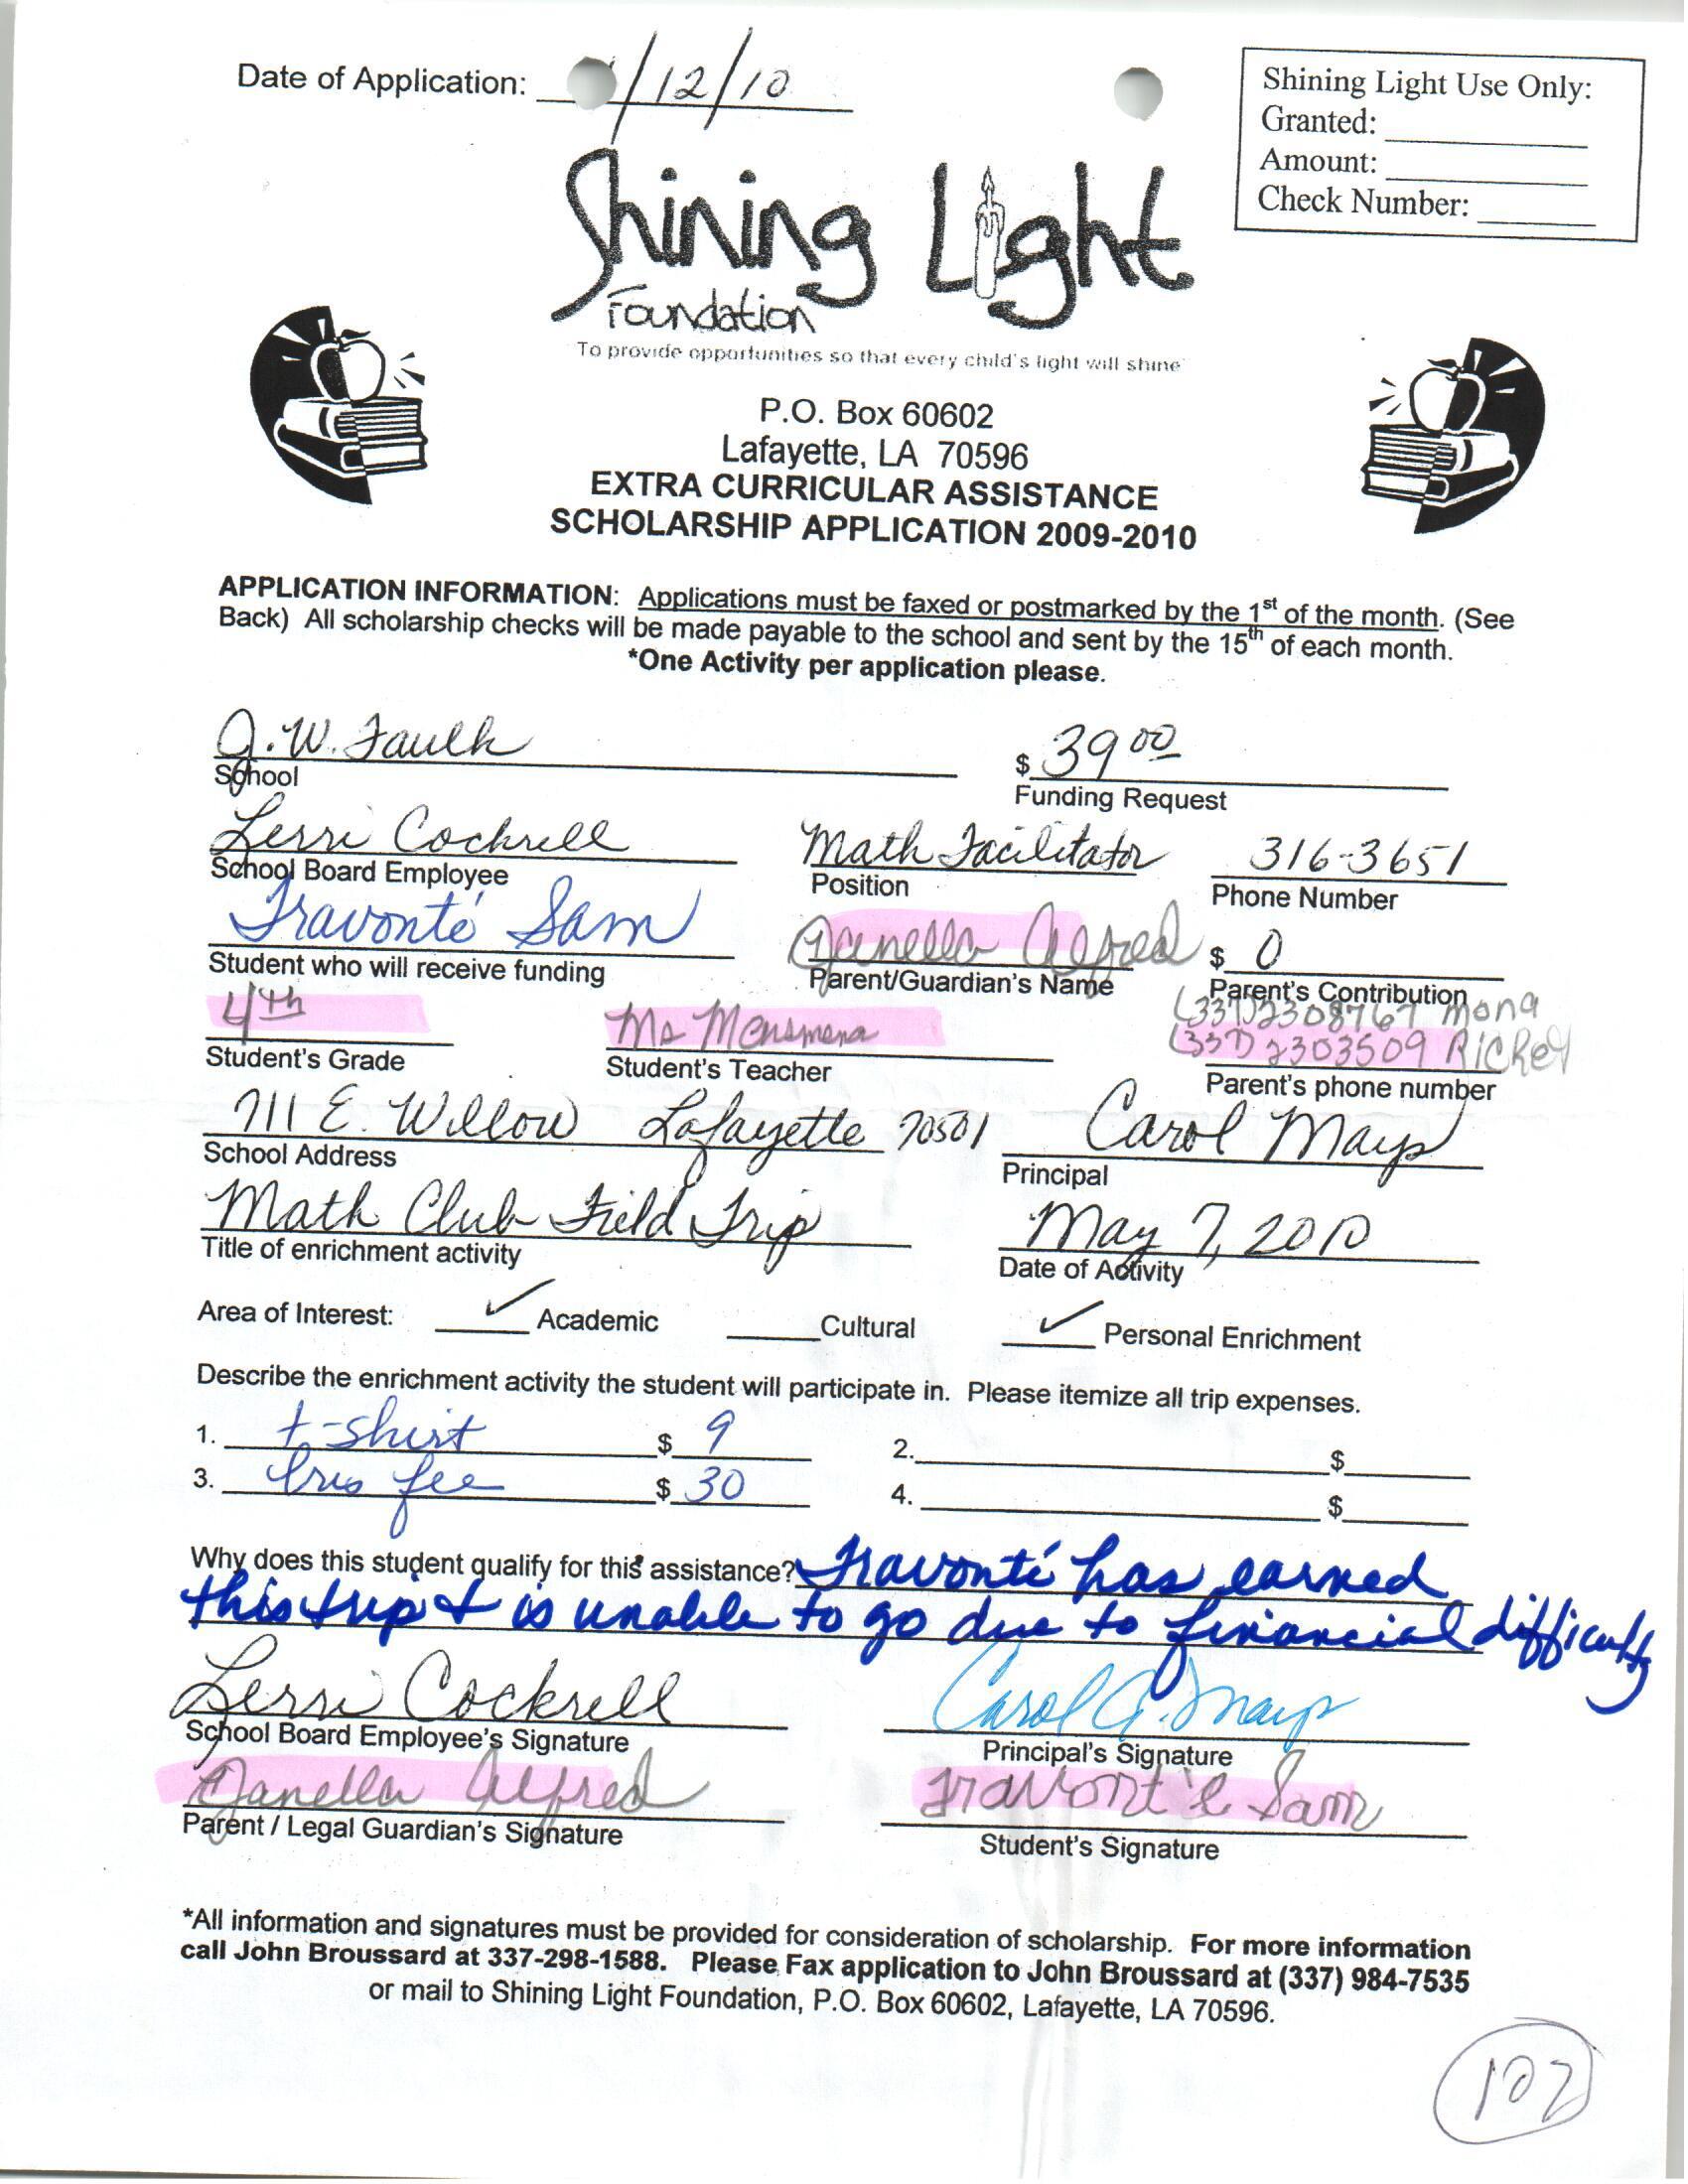 Date of Application: /12/10
Shining Light Use Only:
Granted:
Amount:
Check Number:
Shining Light
Foundation
To provide opportunities so that every child's light will shine
P.O. Box 60602
Lafayette, LA 70596
EXTRA CURRICULAR ASSISTANCE
SCHOLARSHIP APPLICATION 2009-2010
APPLICATION INFORMATION: Applications must be faxed or postmarked by the 1st of the month. (See
Back) All scholarship checks will be made payable to the school and sent by the 15th of each month.
*One Activity per application please.
J.W. Faulk $ 39 00
School Funding Request
Terri Cockrell Math Facilitator 316-3651
School Board Employee Position Phone Number
Travonté Sam Janella Alfred $ 0
Student who will receive funding Parent/Guardian's Name Parent's Contribution
(337)2308767 Mona
4th Ms (337) 2303509 Rickey
Student's Grade Student's Teacher Parent's phone number
711 E. Willow Lafayette 70501 Carol Mays
School Address Principal
Math Club Field Trip May 7, 2010
Title of enrichment activity Date of Activity
Area of Interest: ✓ Academic Cultural ✓ Personal Enrichment
Describe the enrichment activity the student will participate in. Please itemize all trip expenses.
1. t-shirt $ 9 2. $
3. bus fee $ 30 4. $
Why does this student qualify for this assistance? Travonté has earned
this trip & is unable to go due to financial difficulty
Terri Cockrell Carol G. Mays
School Board Employee's Signature Principal's Signature
Janella Alfred Travont'e Sam
Parent / Legal Guardian's Signature Student's Signature
*All information and signatures must be provided for consideration of scholarship. For more information
call John Broussard at 337-298-1588. Please Fax application to John Broussard at (337) 984-7535
or mail to Shining Light Foundation, P.O. Box 60602, Lafayette, LA 70596.
102